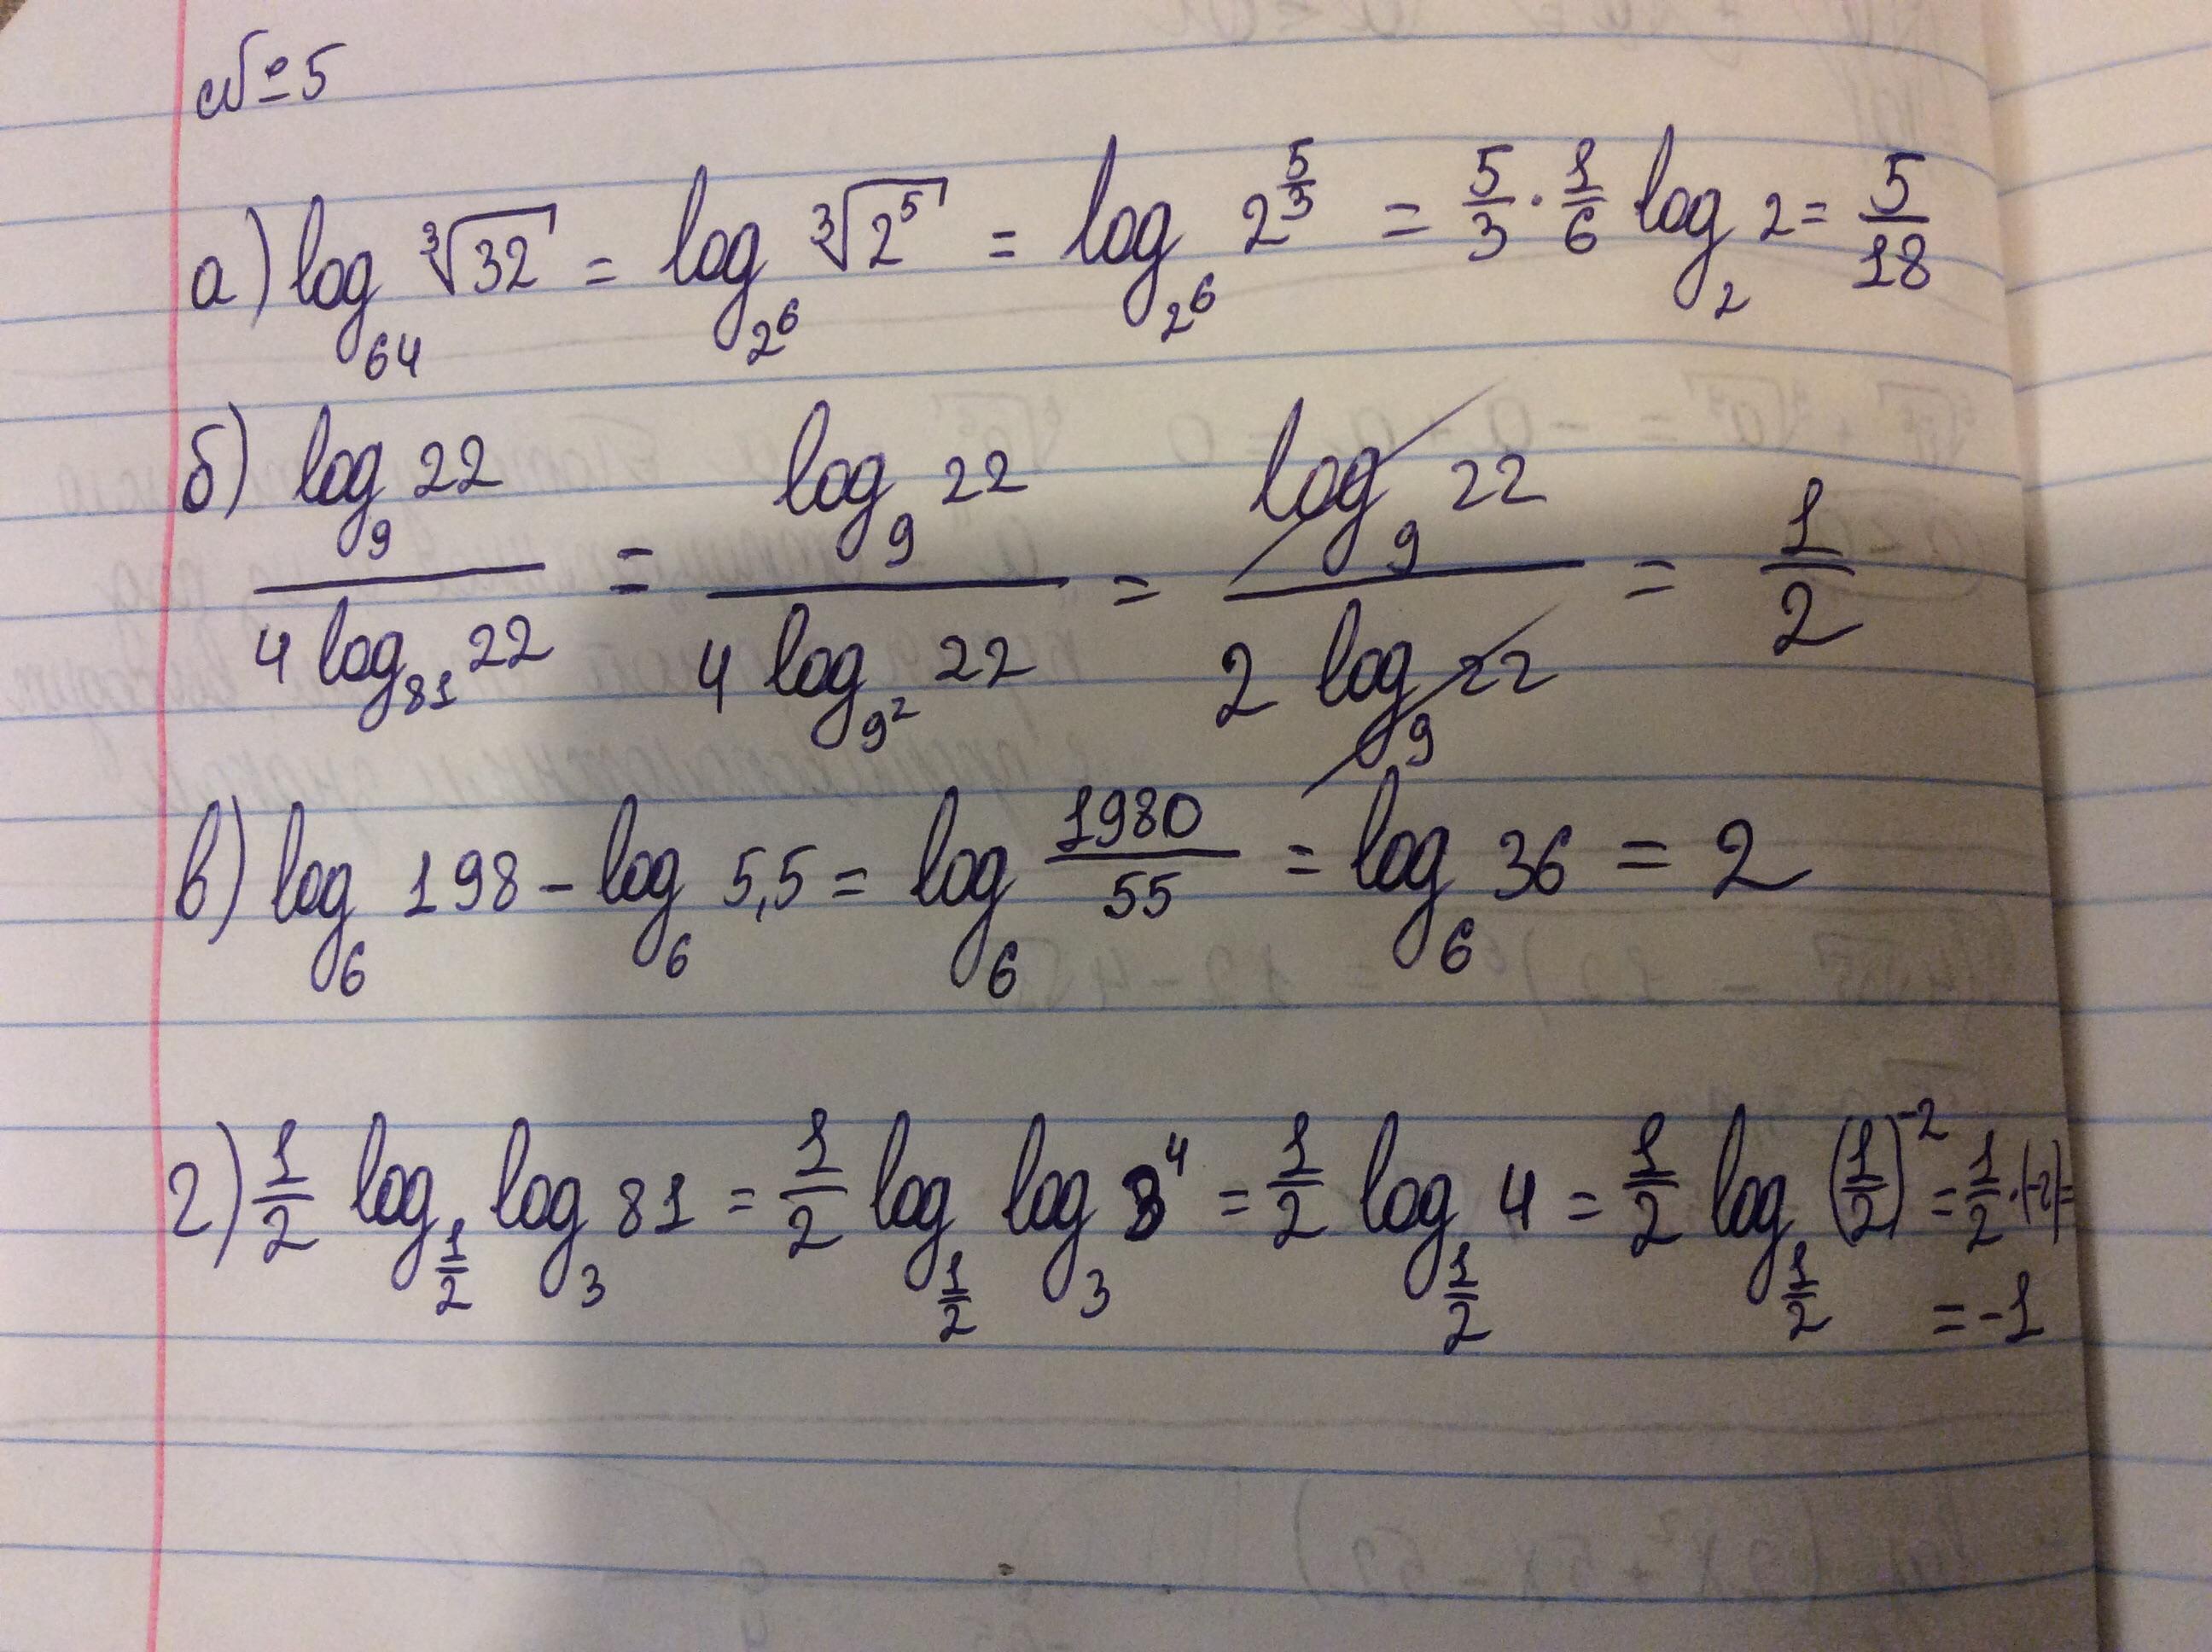 № 5
а) log₆₄ ∛32 = log₂⁶ ∛2⁵ = log₂⁶ 2^(5/3) = 5/3 · 1/6 log₂ 2 = 5/18
б) log₉ 22 / 4 log₈₁ 22 = log₉ 22 / 4 log₉² 22 = log₉ 22 / 2 log₉ 22 = 1/2
в) log₆ 198 - log₆ 5,5 = log₆ 1980/55 = log₆ 36 = 2
г) 1/2 log_(1/2) log₃ 81 = 1/2 log_(1/2) log₃ 3⁴ = 1/2 log_(1/2) 4 = 1/2 log_(1/2) (1/2)⁻² = 1/2 · (-2) =
= -1